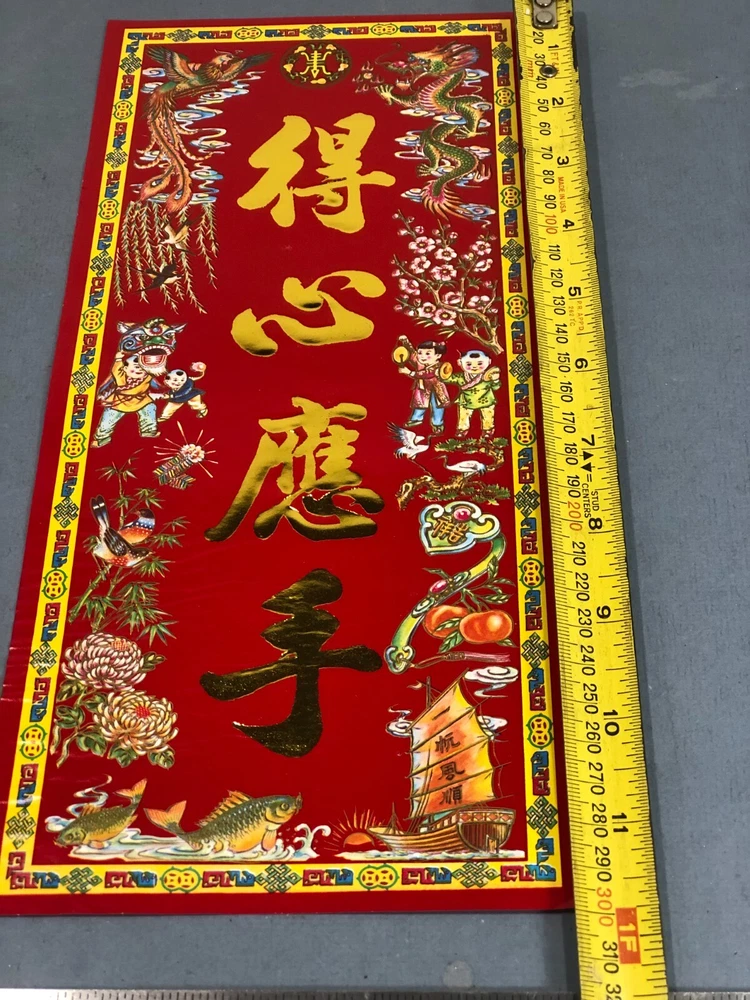 得心應手
一帆風順
1F
2
3
4
5
6
7
8
9
10
11
1F
MADE IN USA
STUD
CENTERS
20
30
40
50
60
70
80
90
100
110
120
130
140
150
160
170
180
190
200
210
220
230
240
250
260
270
280
290
300
310